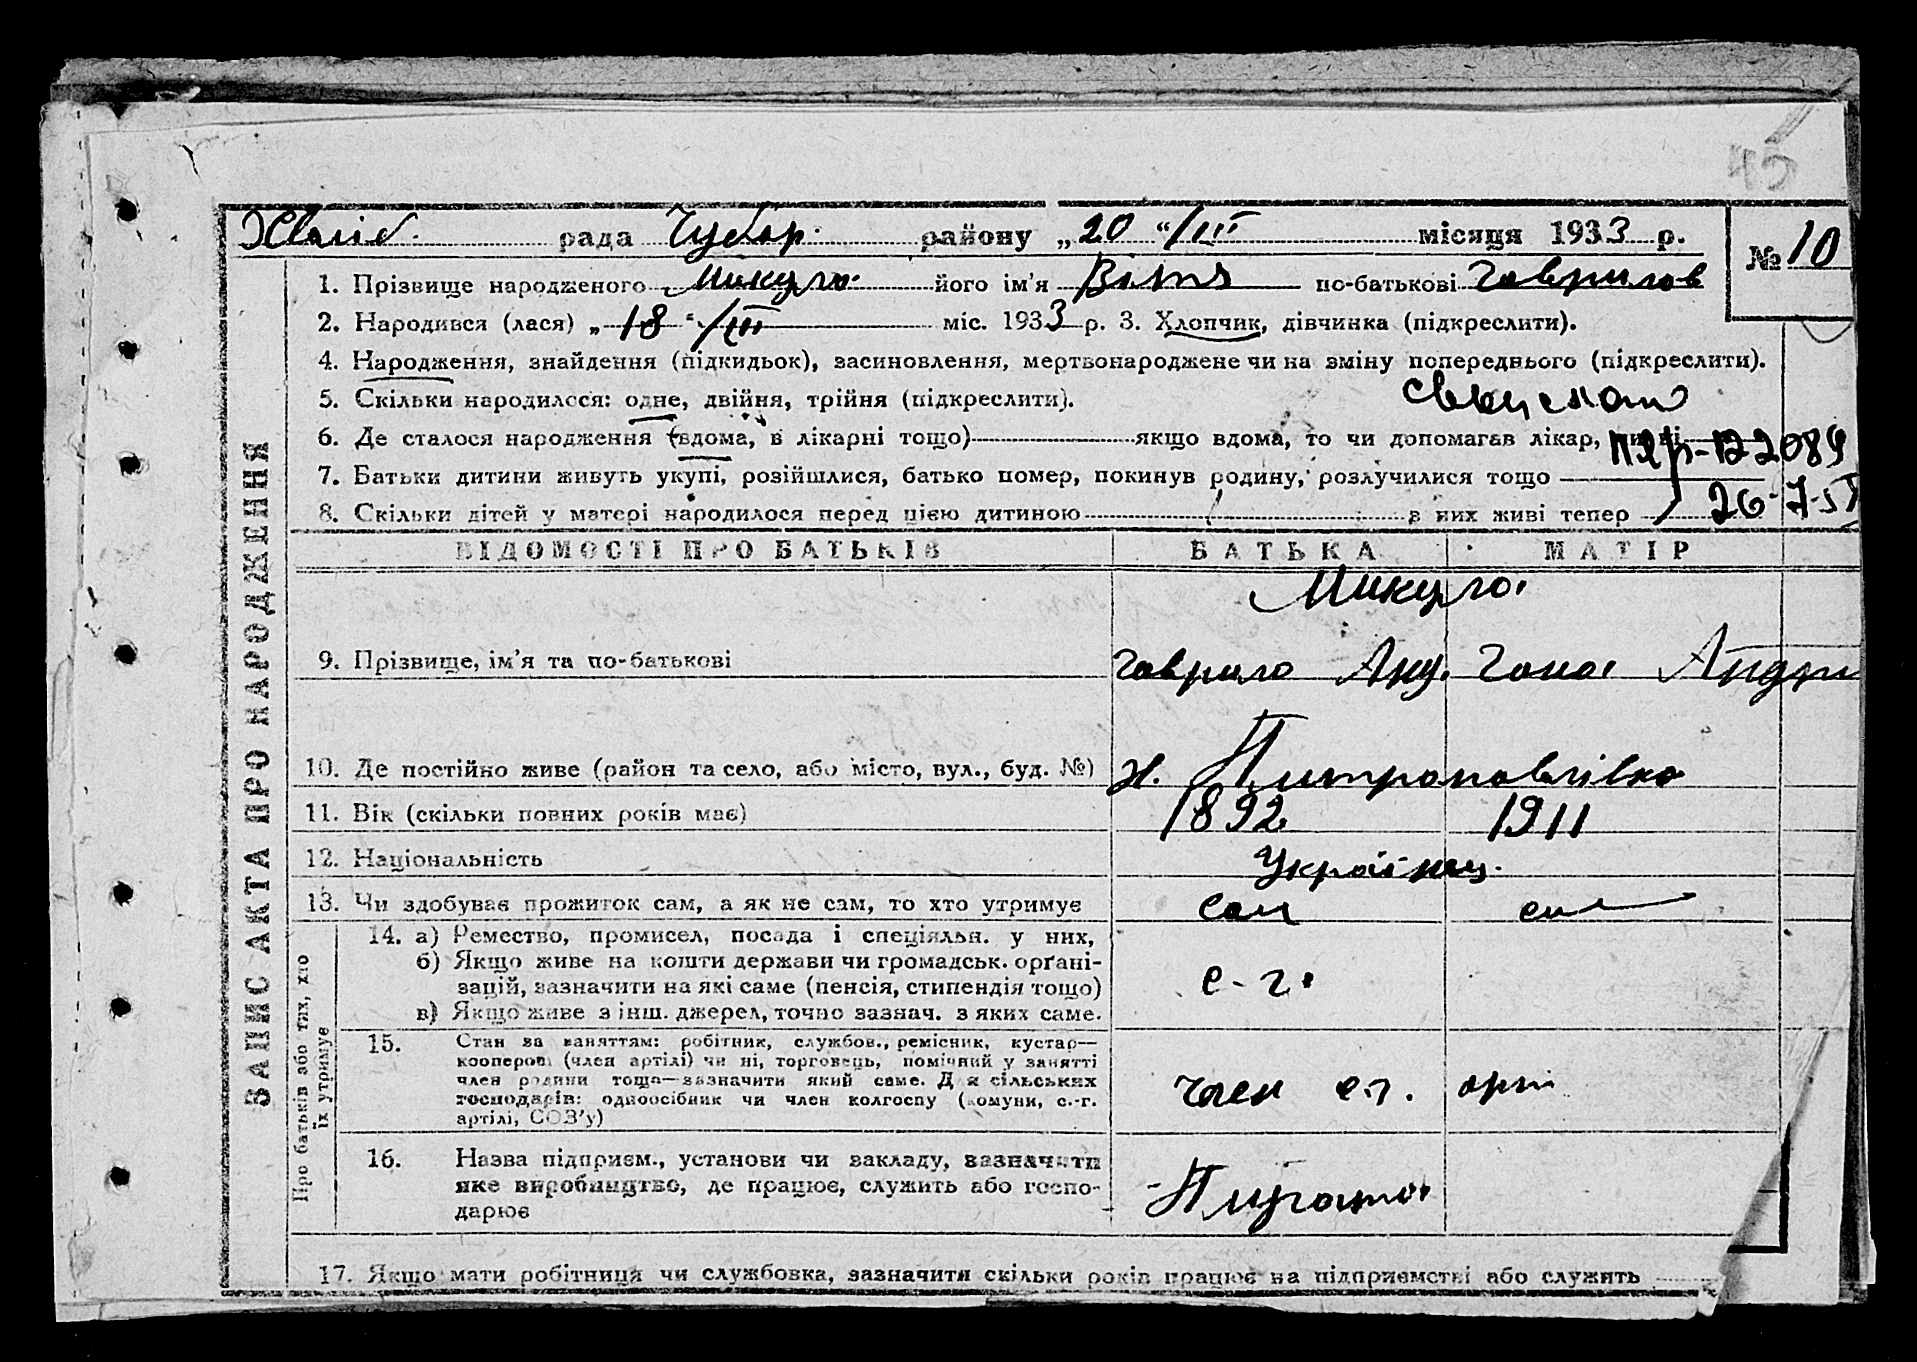 45
рада Чубар. району „20“ /III місяця 1933 р.
№ 10
1. Прізвище народженого Микула його ім'я Вітя по-батькові Гаврилов
2. Народився (лася) „18“ /III міс. 1933 р. 3. Хлопчик, дівчинка (підкреслити).
4. Народження, знайдення (підкидьок), засиновлення, мертвонароджене чи на зміну попереднього (підкреслити).
5. Скільки народилося: одне, двійня, трійня (підкреслити).
6. Де сталося народження (вдома, в лікарні тощо) якщо вдома, то чи допомагав лікар,
7. Батьки дитини живуть укупі, розійшлися, батько помер, покинув родину, розлучилися тощо
8. Скільки дітей у матері народилося перед цією дитиною з них живі тепер
26-7-
ЗАПИС АКТА ПРО НАРОДЖЕННЯ
ВІДОМОСТІ ПРО БАТЬКІВ БАТЬКА МАТІР
Микула
9. Прізвище, ім'я та по-батькові Гаврило Анд. Ганна Андри
10. Де постійно живе (район та село, або місто, вул., буд. №) Питропавлівка
11. Вік (скільки повних років має) 1892 1911
12. Національність Українц.
13. Чи здобуває прожиток сам, а як не сам, то хто утримує сам
Про батьків або тих, хто їх утримує
14. а) Ремество, промисел, посада і спеціяльн. у них,
б) Якщо живе на кошти держави чи громадськ. орґані-
зацій, зазначити на які саме (пенсія, стипендія тощо) с-г.
в) Якщо живе з інш. джерел, точно зазнач. з яких саме.
15. Стан за заняттям: робітник, службов., ремісник, кустар—
кооперов. (член артілі) чи ні, торговець, помічний у занятті
член родини тощо—зазначити який саме. Для сільських
господарів: одноосібник чи член колгоспу (комуни, с.-г. член с.г. арт
артілі, СОЗ'у)
16. Назва підприєм., установи чи закладу, зазначити
яке виробництво, де працює, служить або госпо-
дарює
17. Якщо мати робітниця чи службовка, зазначити скільки років працює на підприємстві або служить